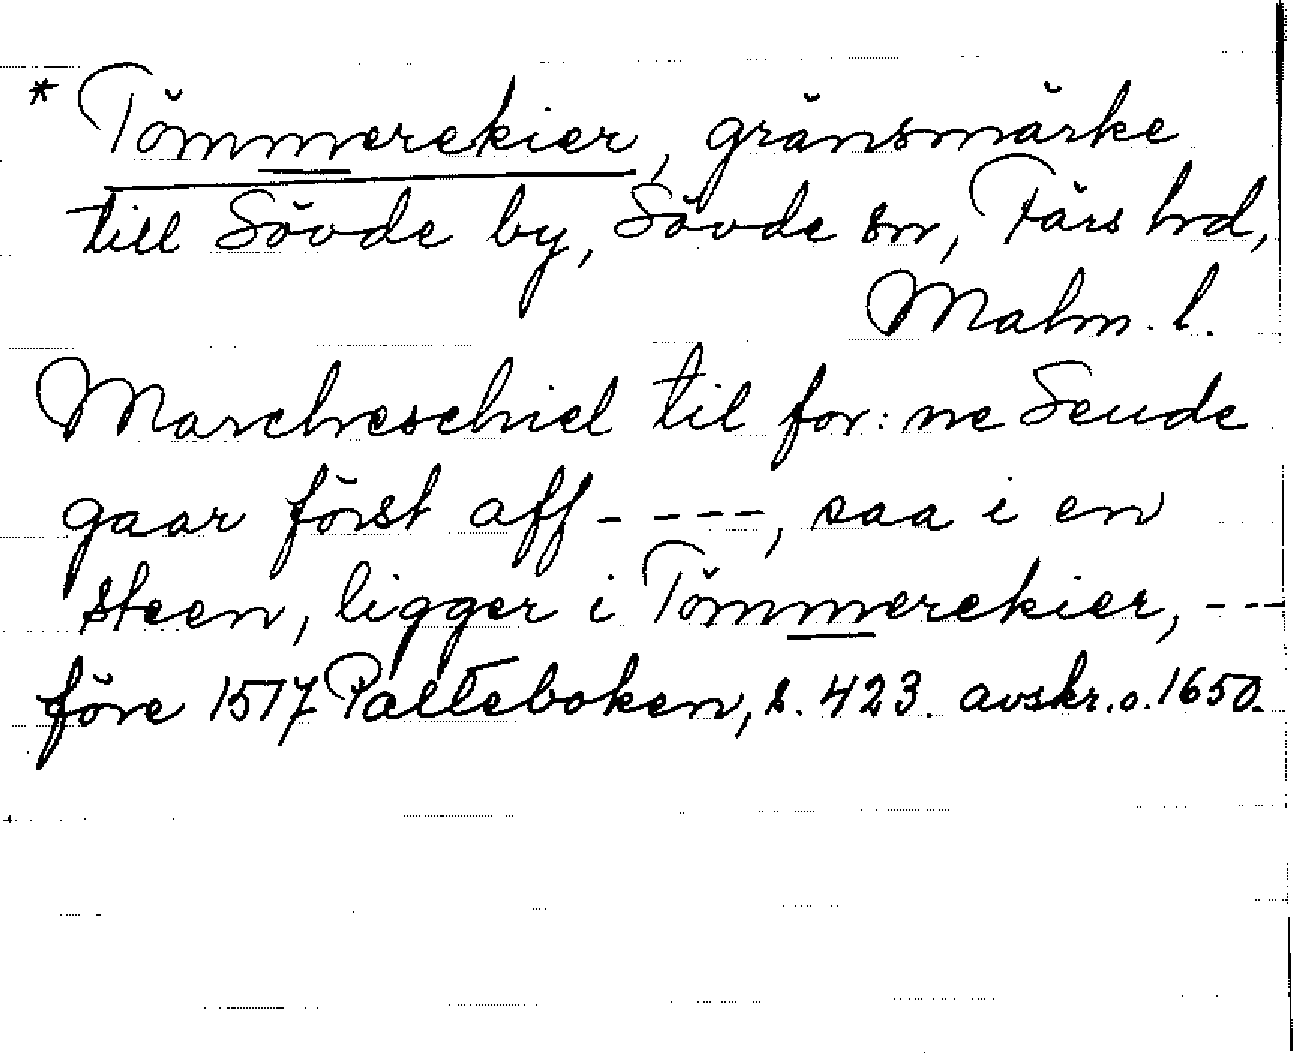 * Tömmerekier, gränsmärke
till Sövde by, Sövde sn, Färs hd,
Malm. l.
Marcheschiel til for: ne Seude
gaar först aff - - - -, saa i en
steen, ligger i Tömmerekier, - - -
före 1517 Palteboken, s. 423. avskr. o. 1650.